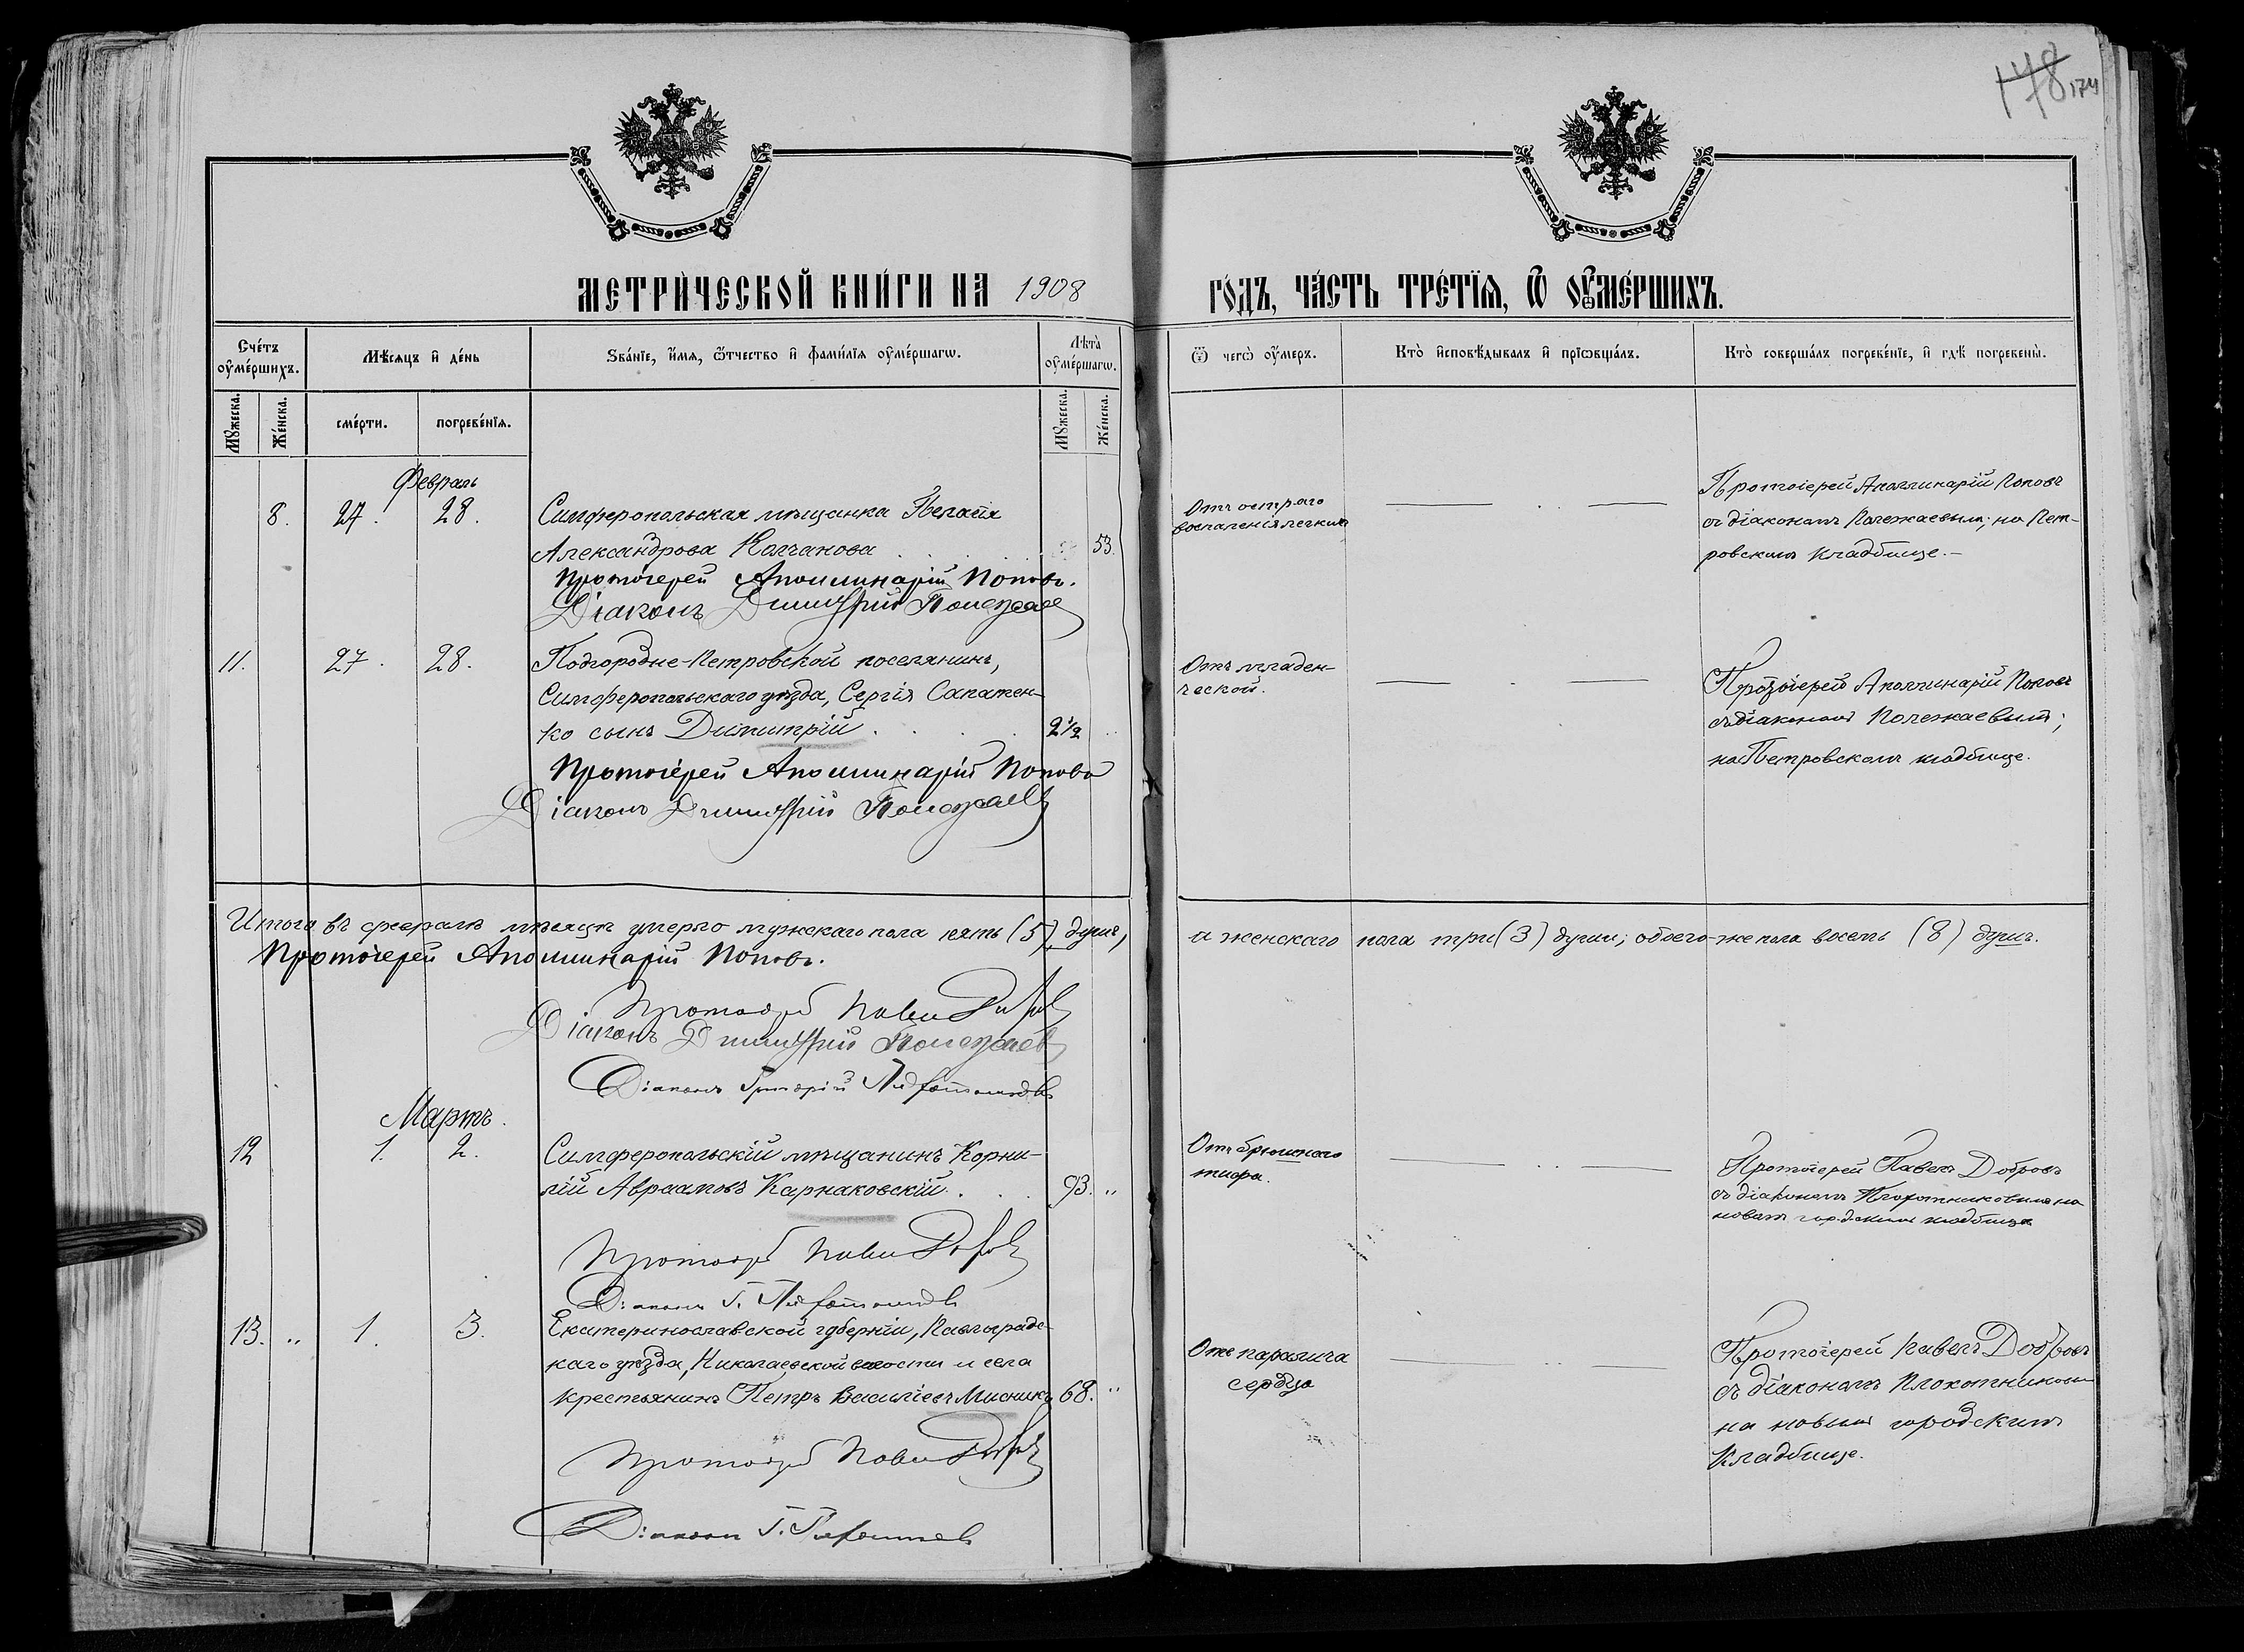 178 174
МЕТРИ́ЧЕСКОЙ КНИ́ГИ НА 1908 ГО́ДЪ, ЧА́СТЬ ТРЕ́ТЇѦ, Ѿ ОУ҆МЕ́РШИХЪ.
Сче́тъ оу҆ме́ршихъ.
Мѣ́сѧцъ и҆ де́нь
Ѕва́нїе, и҆́мѧ, ѻ҆́тчество и҆ фами́лїѧ оу҆ме́ршагѡ.
Лѣ́та оу҆ме́ршагѡ.
Ѿ чегѡ̀ оу҆́меръ.
Кто̀ и҆сповѣ́дывалъ и҆ прїѡбща́лъ.
Кто̀ соверша́лъ погребе́нїе, и҆ гдѣ̀ погребены̀.
Мꙋ́жеска.
Же́нска.
сме́рти.
погребе́нїѧ.
Мꙋ́жеска.
Же́нска.
Февраль
8. 27. 28.
Симферопольская мѣщанка Пелагія
Александрова Колчанова 53.
Протоіерей Аполлинарій Поповъ.
Діаконъ Димитрій Полежаев
Отъ остраго
воспаленія легкихъ
Протоіерей Аполлинарій Поповъ
съ діакономъ Полежаевым; на Пет-
ровскомъ кладбище.-
11. 27. 28.
Подгородне-Петровской поселянинъ,
Симферопольскаго уѣзда, Сергія Сапатен-
ко сынъ Димитрій 2 1/2
Протоіерей Аполлинарій Поповъ
Діаконъ Димитрій Полежаев
Отъ младен-
ческой.
Протоіерей Аполлинарій Поповъ
съ діакономъ Полежаевым;
на Петровскомъ кладбище.
Итого въ февралѣ мѣсяцѣ умерло мужскаго пола пять (5) душъ, и женскаго пола три (3) души; обоего-же пола восемь (8) душъ.
Протоіерей Аполлинарій Поповъ.
Протоіерей Павел Добров
Діаконъ Димитрій Полежаев
Діаконъ Григорій
Мартъ.
12 1. 2.
Симферопольскій мѣщанинъ Корни-
лій Авраамовъ Карнаковскій. 93. "
Протоіерей Павел Добров
Діаконъ Г.
Отъ брюшного
тифа.
Протоіерей Павелъ Добровъ
съ діакономъ Плохотниковымъ на
новомъ городскомъ кладбище
13. " 1. 3.
Екатеринославской губерніи, Павлоградс-
каго уѣзда, Николаевской волости и села
крестьянинъ Петръ Василіевъ Мисникъ 68. "
Протоіерей Павел Добров
Діаконъ Г.
Отъ паралича
сердца
Протоіерей Павелъ Добровъ
съ діакономъ Плохотниковым
на новомъ городскимъ
кладбище.